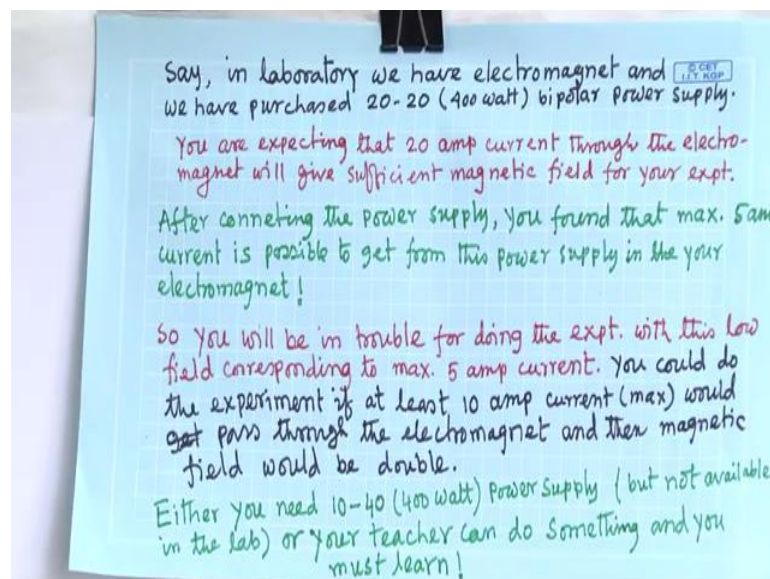 Say, in laboratory we have electromagnet and
© CET
I.I.T. KGP
we have purchased 20-20 (400 watt) bipolar power supply.
You are expecting that 20 amp current through the electro-
magnet will give sufficient magnetic field for your expt.
After conneting the power supply, you found that max. 5am
current is possible to get from this power supply in the your
electromagnet!
So you will be in trouble for doing the expt. with this low
field corresponding to max. 5 amp current. You could do
the experiment if at least 10 amp current (max) would
get pass through the electromagnet and then magnetic
field would be double.
Either you need 10-40 (400 watt) power supply (but not available
in the lab) or your teacher can do something and you
must learn!